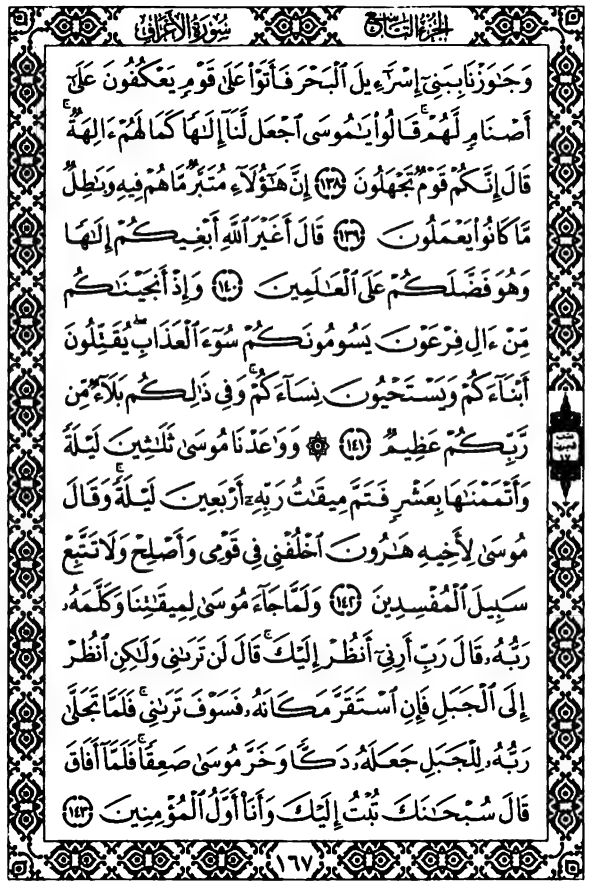 سُورَةُ الأَعْرَافِ
الجُزْءُ التَّاسِعُ
وَجَٰوَزْنَا بِبَنِىٓ إِسْرَٰٓءِيلَ ٱلْبَحْرَ فَأَتَوْا۟ عَلَىٰ قَوْمٍ يَعْكُفُونَ عَلَىٰٓ
أَصْنَامٍ لَّهُمْ ۚ قَالُوا۟ يَٰمُوسَى ٱجْعَل لَّنَآ إِلَٰهًا كَمَا لَهُمْ ءَالِهَةٌ ۚ
قَالَ إِنَّكُمْ قَوْمٌ تَجْهَلُونَ ١٣٨ إِنَّ هَٰٓؤُلَآءِ مُتَبَّرٌ مَّا هُمْ فِيهِ وَبَٰطِلٌ
مَّا كَانُوا۟ يَعْمَلُونَ ١٣٩ قَالَ أَغَيْرَ ٱللَّهِ أَبْغِيكُمْ إِلَٰهًا
وَهُوَ فَضَّلَكُمْ عَلَى ٱلْعَٰلَمِينَ ١٤٠ وَإِذْ أَنجَيْنَٰكُم
مِّنْ ءَالِ فِرْعَوْنَ يَسُومُونَكُمْ سُوٓءَ ٱلْعَذَابِ ۖ يُقَتِّلُونَ
أَبْنَآءَكُمْ وَيَسْتَحْيُونَ نِسَآءَكُمْ ۚ وَفِى ذَٰلِكُم بَلَآءٌ مِّن
رَّبِّكُمْ عَظِيمٌ ١٤١ ۞ وَوَٰعَدْنَا مُوسَىٰ ثَلَٰثِينَ لَيْلَةً
وَأَتْمَمْنَٰهَا بِعَشْرٍ فَتَمَّ مِيقَٰتُ رَبِّهِۦٓ أَرْبَعِينَ لَيْلَةً ۚ وَقَالَ
مُوسَىٰ لِأَخِيهِ هَٰرُونَ ٱخْلُفْنِى فِى قَوْمِى وَأَصْلِحْ وَلَا تَتَّبِعْ
سَبِيلَ ٱلْمُفْسِدِينَ ١٤٢ وَلَمَّا جَآءَ مُوسَىٰ لِمِيقَٰتِنَا وَكَلَّمَهُۥ
رَبُّهُۥ قَالَ رَبِّ أَرِنِىٓ أَنظُرْ إِلَيْكَ ۚ قَالَ لَن تَرَىٰنِى وَلَٰكِنِ ٱنظُرْ
إِلَى ٱلْجَبَلِ فَإِنِ ٱسْتَقَرَّ مَكَانَهُۥ فَسَوْفَ تَرَىٰنِى ۚ فَلَمَّا تَجَلَّىٰ
رَبُّهُۥ لِلْجَبَلِ جَعَلَهُۥ دَكًّا وَخَرَّ مُوسَىٰ صَعِقًا ۚ فَلَمَّآ أَفَاقَ
قَالَ سُبْحَٰنَكَ تُبْتُ إِلَيْكَ وَأَنَا۠ أَوَّلُ ٱلْمُؤْمِنِينَ ١٤٣
١٦٧